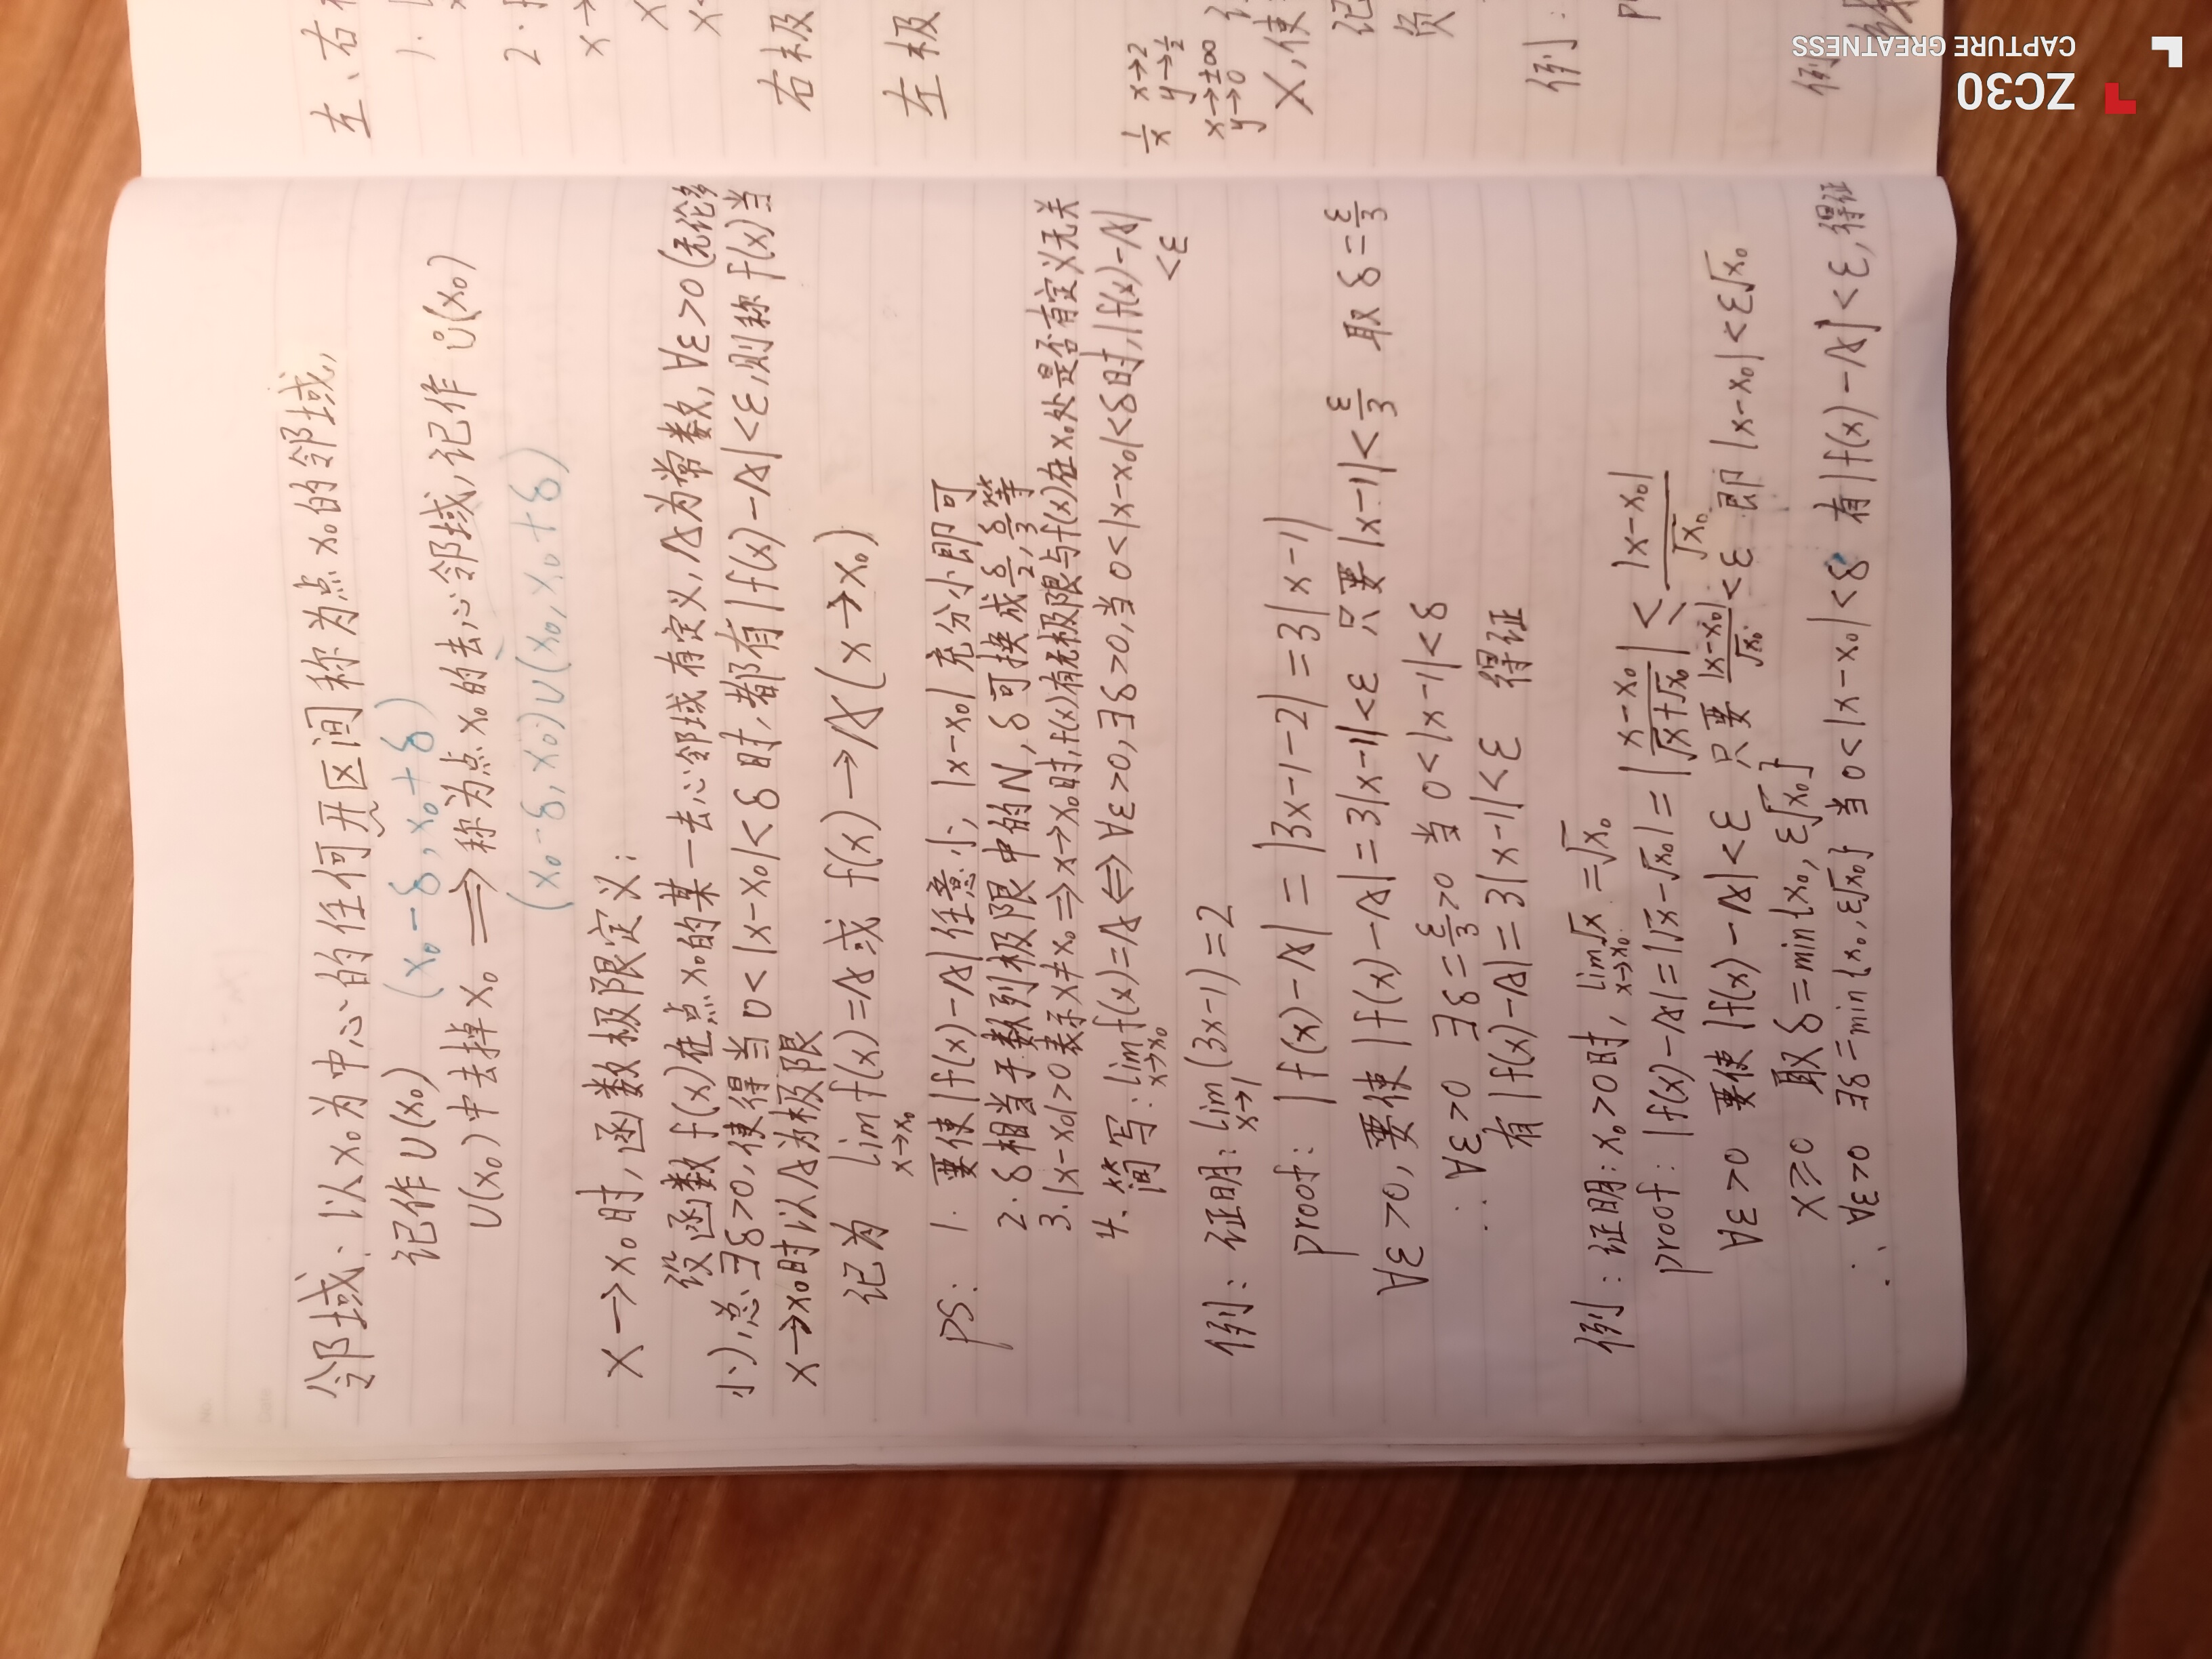 邻域：以x₀为中心的任何开区间称为点x₀的邻域，
记作U(x₀) (x₀-δ, x₀+δ)
U(x₀)中去掉x₀ ⟹ 称为点x₀的去心邻域，记作 Ů(x₀)
(x₀-δ, x₀)∪(x₀, x₀+δ)
x→x₀时，函数极限定义：
设函数f(x)在点x₀的某一去心邻域有定义，A为常数，∀ε>0(无论多
小)，总∃δ>0，使得当0<|x-x₀|<δ时，都有|f(x)-A|<ε，则称f(x)当
x→x₀时以A为极限
记为 lim f(x)=A或 f(x)→A(x→x₀)
x→x₀
PS: 1. 要使|f(x)-A|任意小，|x-x₀|充分小即可
2. δ相当于数列极限中的N，δ可换成δ/2，δ/3等
3. |x-x₀|>0表示x≠x₀⇒x→x₀时，f(x)有无极限与f(x)在x₀处是否有定义无关
4. 简写：lim f(x)=A⇔∀ε>0，∃δ>0，当0<|x-x₀|<δ时，|f(x)-A|
x→x₀
<ε
例：证明：lim(3x-1)=2
x→1
proof: |f(x)-A|=|3x-1-2|=3|x-1|
∀ε>0，要使|f(x)-A|=3|x-1|<ε 只要|x-1|<ε/3 取δ=ε/3
∴∀ε>0 ∃δ=ε/3>0 当0<|x-1|<δ
有|f(x)-A|=3|x-1|<ε 得证
例：证明：x₀>0时，lim√x=√x₀
x→x₀
proof: |f(x)-A|=|√x-√x₀|=|(x-x₀)/(√x+√x₀)|<|x-x₀|/√x₀
∀ε>0 要使|f(x)-A|<ε 只要|x-x₀|/√x₀<ε 即|x-x₀|<ε√x₀
x≥0 取δ=min{x₀, ε√x₀}
∴∀ε>0 ∃δ=min{x₀, ε√x₀} 当0<|x-x₀|<δ 有|f(x)-A|<ε，得证
左、右
1.
2.
x→
x
x
右极
左极
1/x x→2 y→1/2
x→±∞
y→0
X，使
记
负
例：
例
ZC30
CAPTURE GREATNESS